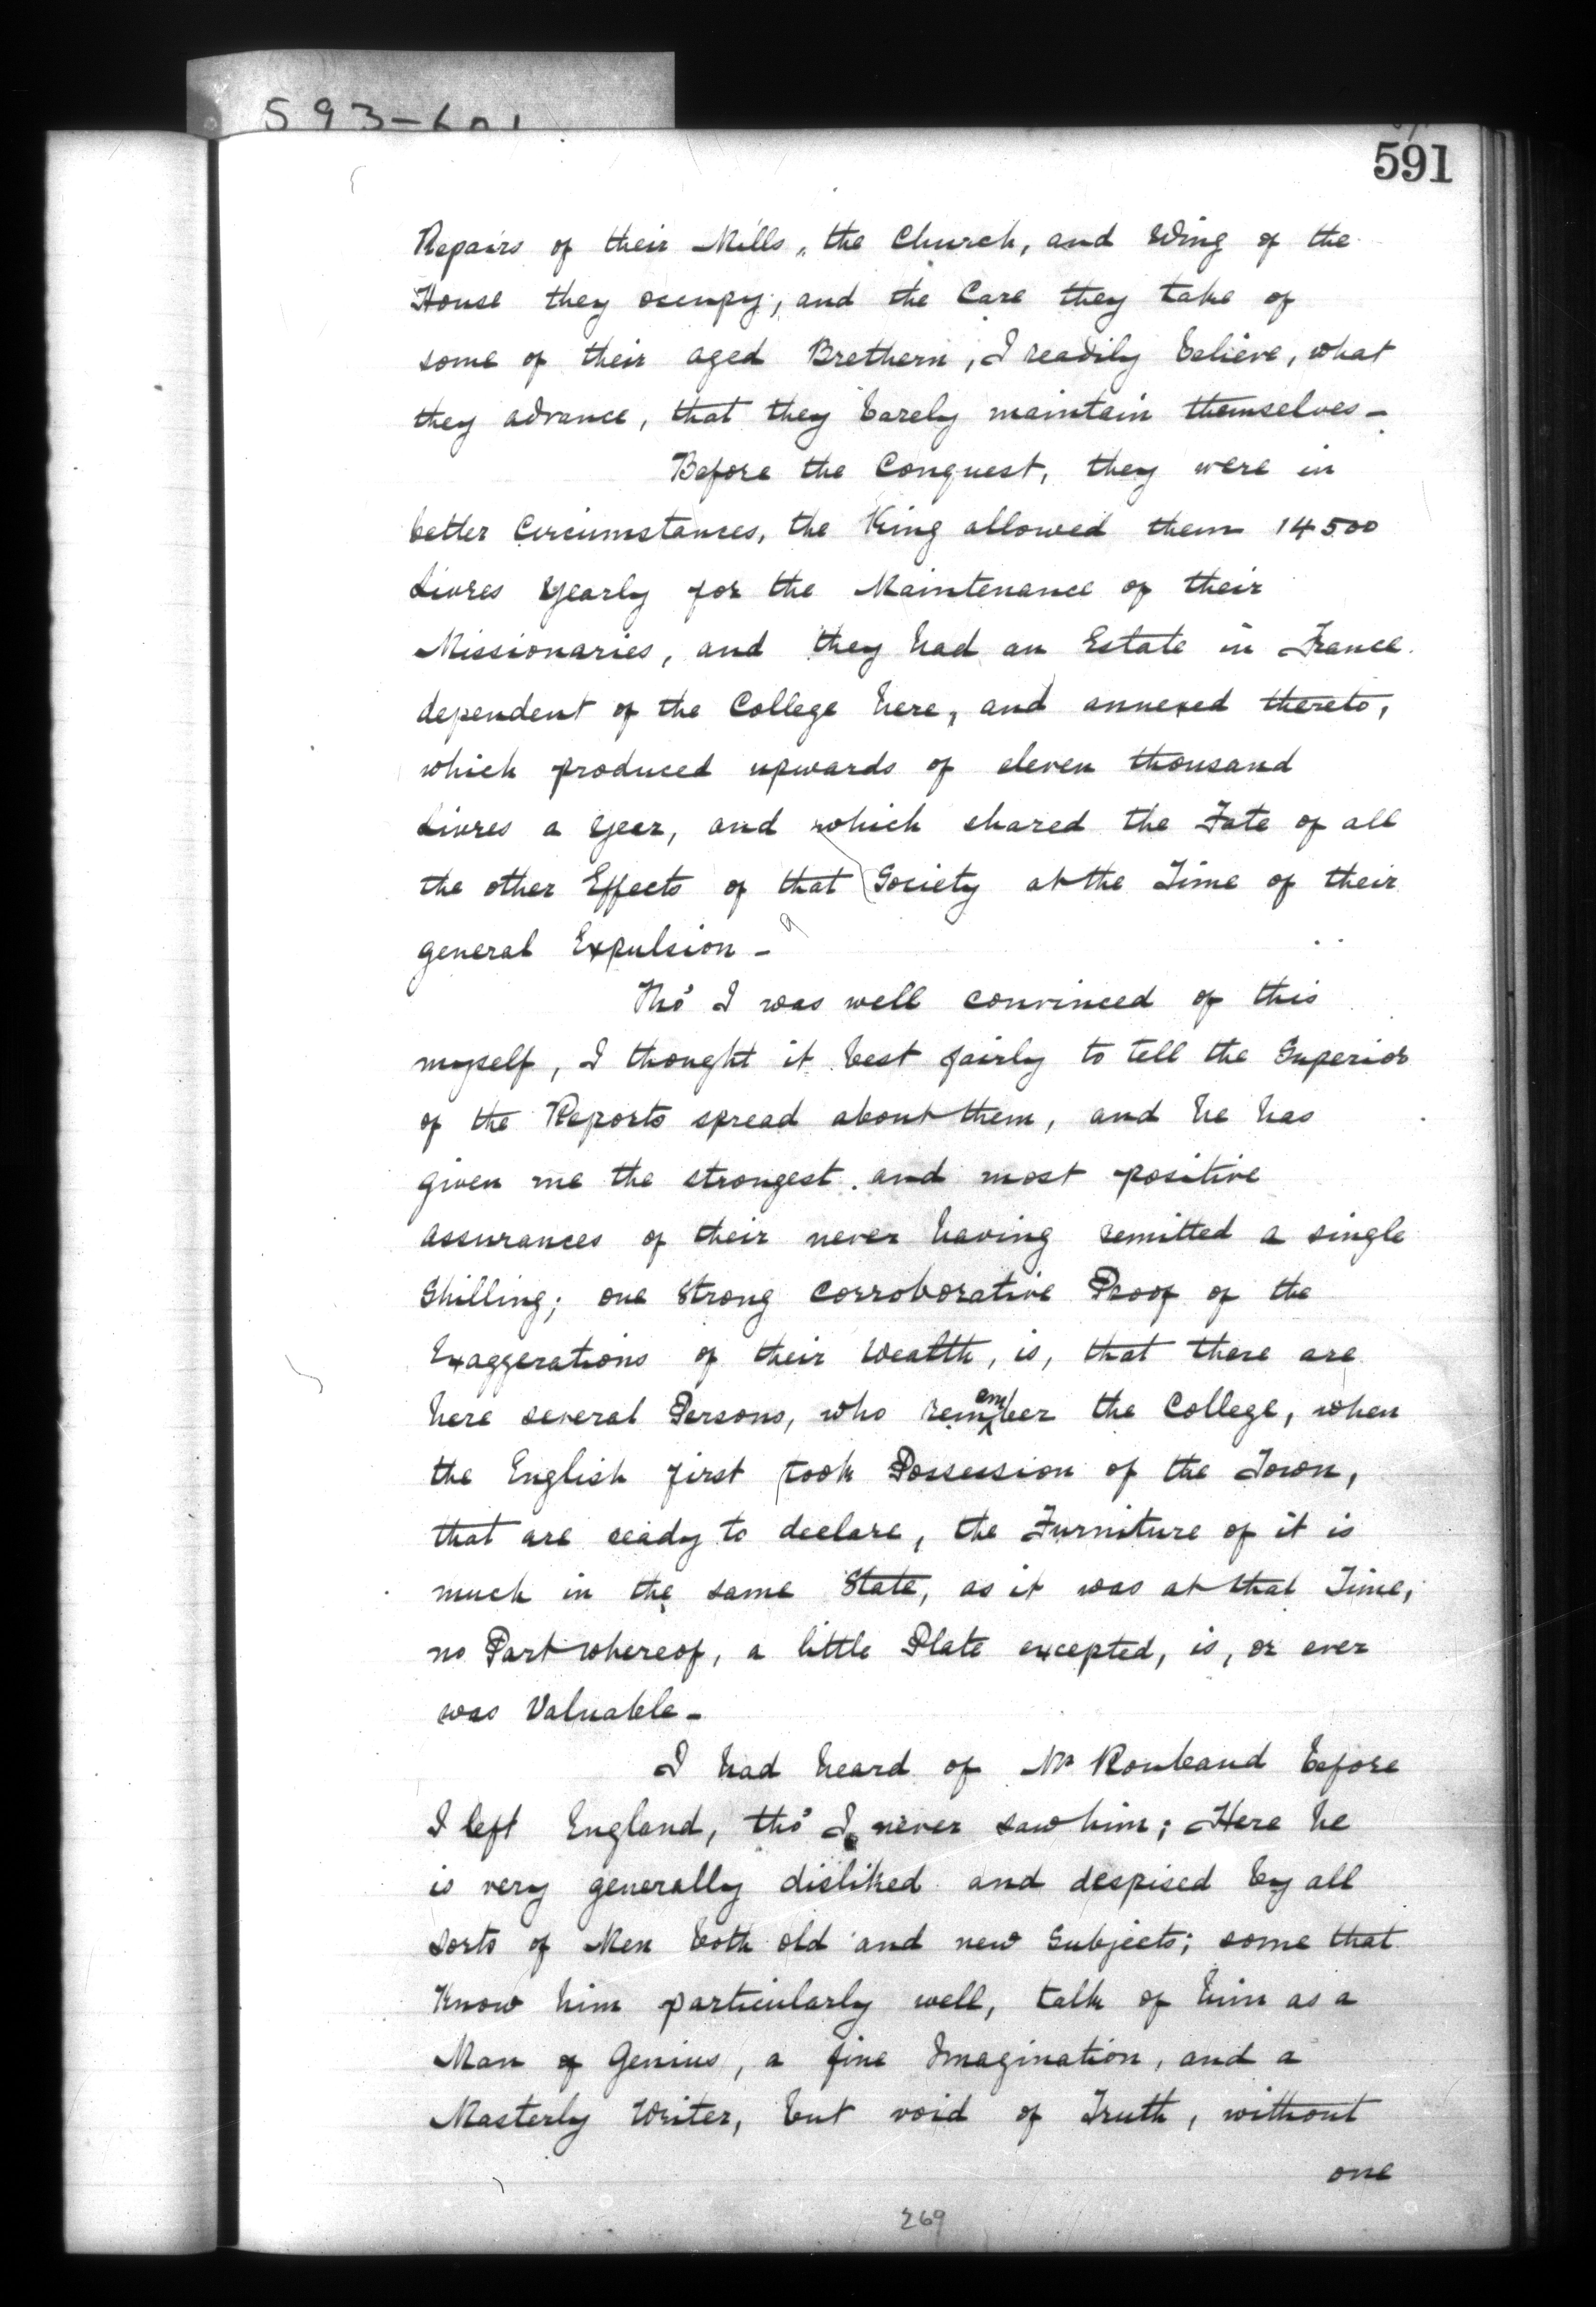 593-601
591
Repairs of their Mills, the Church, and Wing of the
House they occupy; and the Care they take of
some of their aged Brethern, I readily believe, what
they advance, that they barely maintain themselves-
Before the Conquest, they were in
better Circumstances, the King allowed them 14500
Livres Yearly for the Maintenance of their
Missionaries, and they had an Estate in France
dependent of the College here, and annexed thereto,
which produced upwards of eleven thousand
Livres a Year, and which shared the Fate of all
the other Effects of that Society at the Time of their
general Expulsion-
Tho' I was well convinced of this
myself, I thought it best fairly to tell the Superior
of the Reports spread about them, and he has
given me the strongest and most positive
assurances of their never having remitted a single
Shilling; one Strong Corroborative Proof of the
Exaggerations of their Wealth, is, that there are
here several Persons, who remember the College, when
the English first took Possession of the Town,
that are ready to declare, the Furniture of it is
much in the same State, as it was at that Time,
no Part whereof, a little Plate excepted, is, or ever
was Valuable-
I had heard of Mr Roubaud before
I left England, tho' I never saw him; Here he
is very generally disliked and despised by all
sorts of Men both old and new Subjects; some that
know him particularly well, talk of him as a
Man of Genius, a fine Imagination, and a
Masterly Writer, but void of Truth, without
one
269